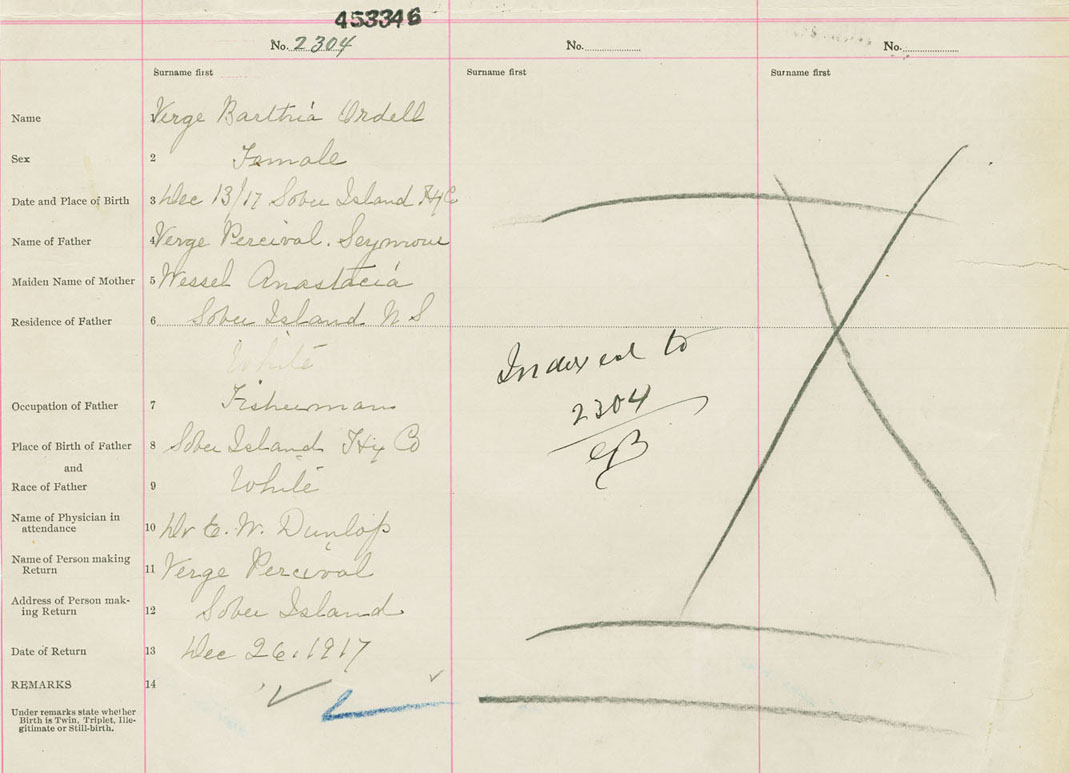 453346
No. 2304 No. No.
Surname first Surname first Surname first
Name 1 Verge Barthia Ordell
Sex 2 Female
Date and Place of Birth 3 Dec 13/17 Sober Island Hfx Co
Name of Father 4 Verge Percival. Seymour
Maiden Name of Mother 5 Wessel Anastacia
Residence of Father 6 Sober Island N S
White
Indexed to
2304
Occupation of Father 7 Fisherman
Place of Birth of Father 8 Sober Island Hfx Co
and
Race of Father 9 White
Name of Physician in
attendance 10 Dr E. W. Dunlop
Name of Person making
Return 11 Verge Percival
Address of Person mak-
ing Return 12 Sober Island
Date of Return 13 Dec 26. 1917
REMARKS 14
Under remarks state whether
Birth is Twin, Triplet, Ille-
gitimate or Still-birth.